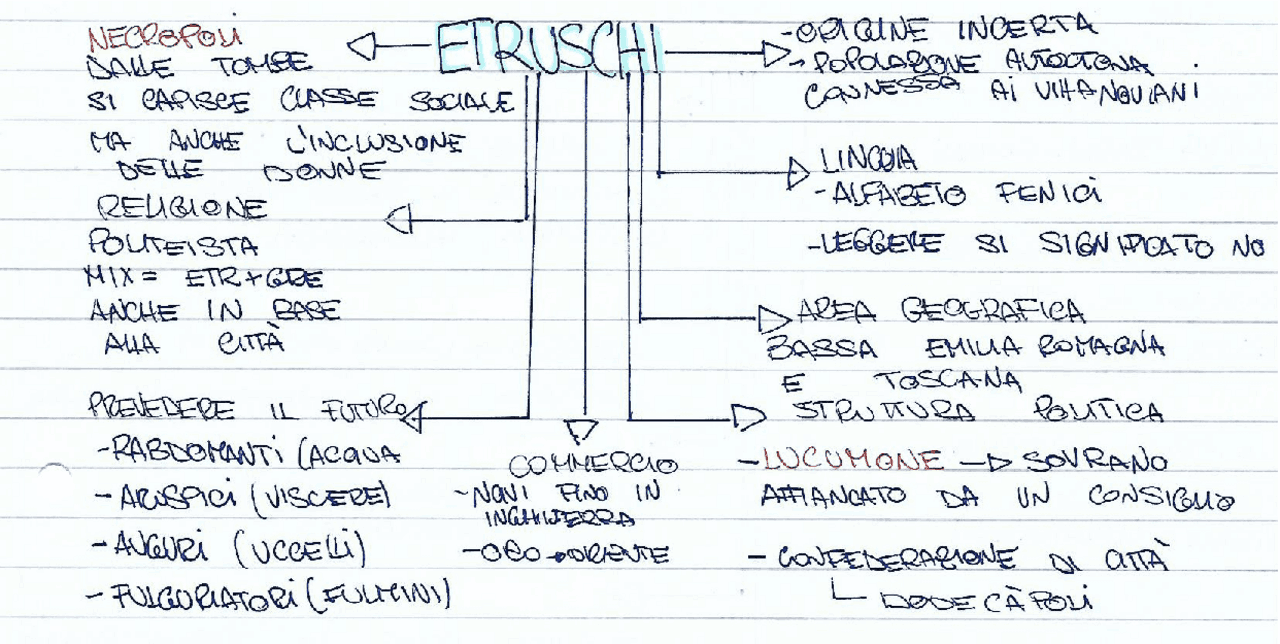 ETRUSCHI
NECROPOLI
DALLE TOMBE
SI CAPISCE CLASSE SOCIALE
MA ANCHE L'INCLUSIONE
DELLE DONNE
RELIGIONE
POLITEISTA
MIX = ETR + GRE
ANCHE IN BASE
ALLA CITTÀ
PREVEDERE IL FUTURO
- RABDOMANTI (ACQUA
- ARUSPICI (VISCERE)
- AUGURI (UCCELLI)
- FULGURIATORI (FULMINI)
COMMERCIO
- NAVI FINO IN
INGHILTERRA
- ORO → ORIENTE
- ORIGINE INCERTA
- POPOLAZIONE AUTOCTONA
CONNESSA AI VILLANOVIANI
LINGUA
- ALFABETO FENICI
- LEGGERE SI SIGNIFICATO NO
AREA GEOGRAFICA
BASSA EMILIA ROMAGNA
E TOSCANA
STRUTTURA POLITICA
- LUCUMONE → SOVRANO
AFFIANCATO DA UN CONSIGLIO
- CONFEDERAZIONE DI CITTÀ
DODECÀPOLI